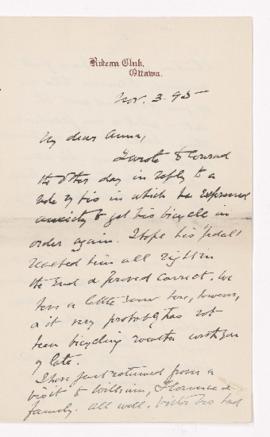 Rideau Club,
Ottawa.
Nov. 3. 95
My dear Anna,
I wrote to Conrad
the other day in reply to a
note of his in which he expressed
anxiety to get his bicycle in
order again. I hope his pedal
reached him all right in
the end & proved correct. We
have a little snow here, however,
& it very probably has not
been bicycling weather with you
of late.
I have just returned from a
visit to William, Florence &
family. All well. Victor has had